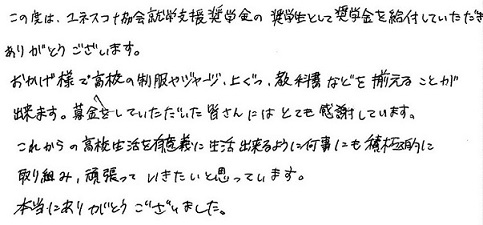 この度は、ユネスコ協会就学支援奨学金の奨学生として奨学金を給付していただき
ありがとうございます。
おかげ様で高校の制服やジャージ、上ぐつ、教科書などを揃えることが
出来ます。募金をしていただいた皆さんにはとても感謝しています。
これからの高校生活を有意義に生活出来るように何事にも積極的に
取り組み、頑張っていきたいと思っています。
本当にありがとうございました。